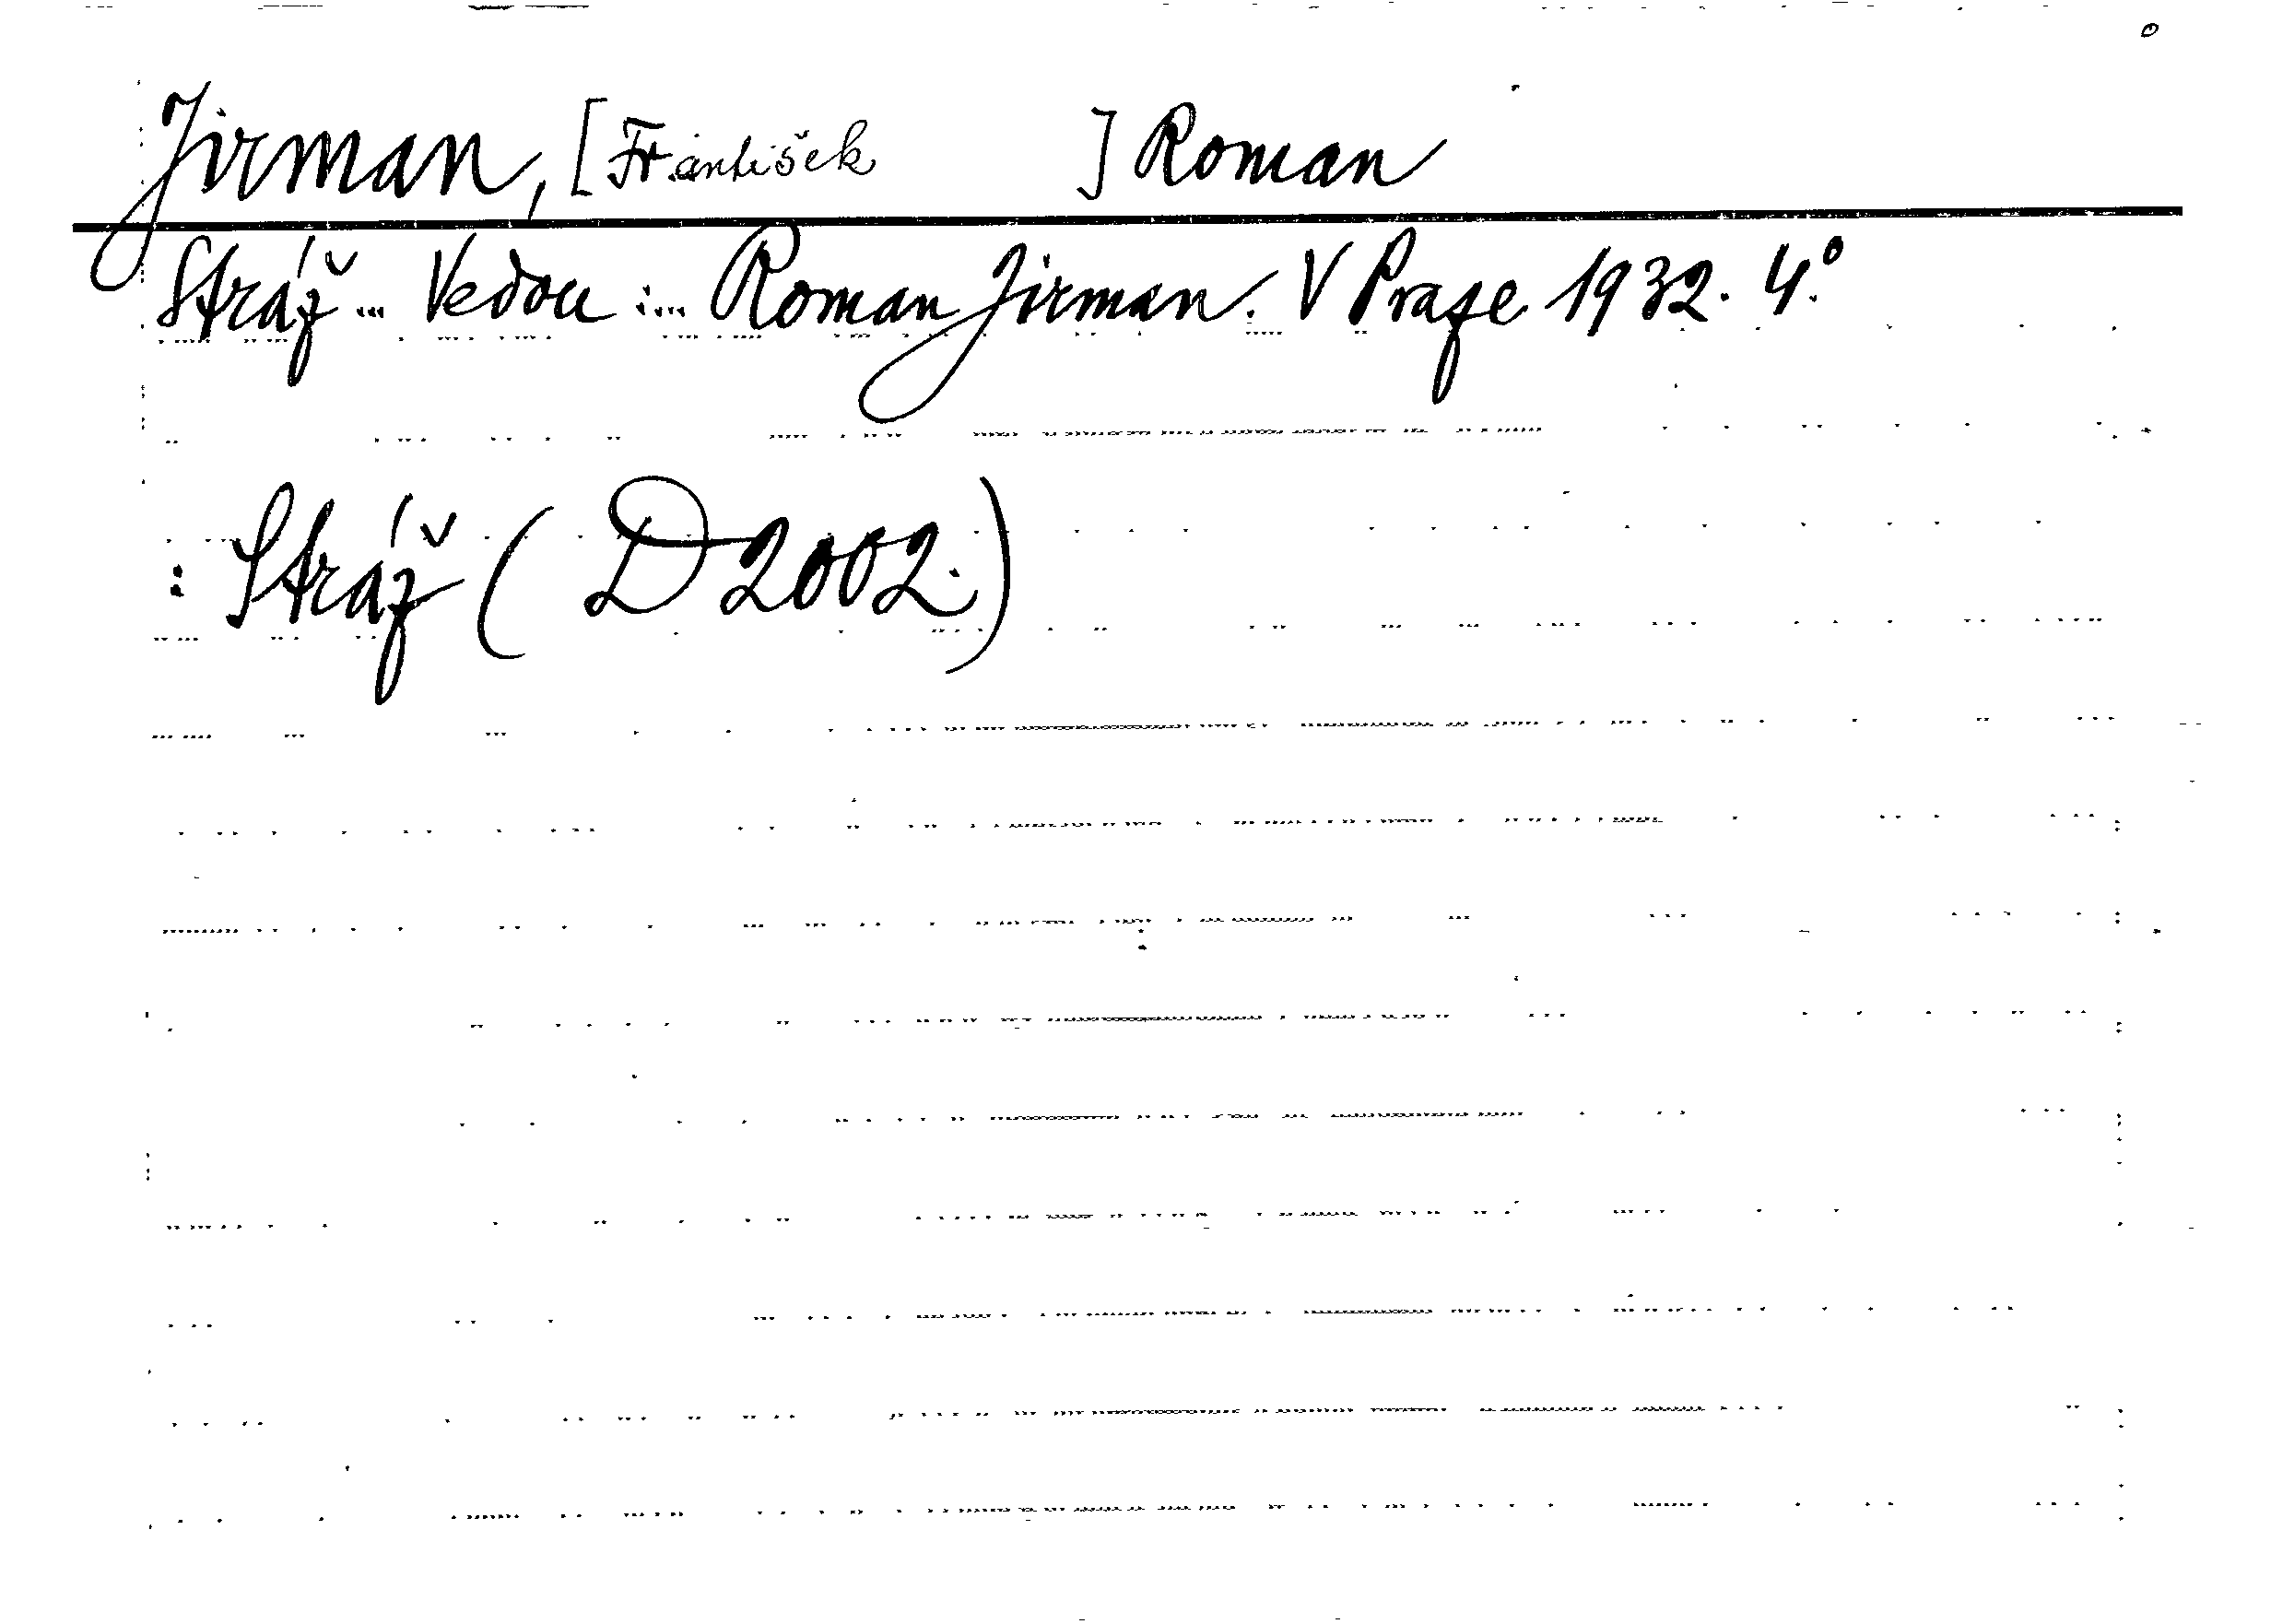 Jirman, [František ] Roman
Stráž ... Vedou : ... Roman Jirman. V Praze 1932. 4.°
: Stráž ( D 2002.)